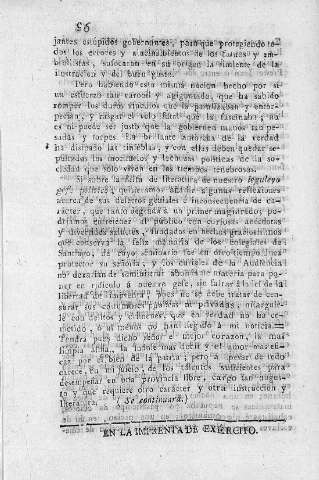 26
jantes estúpidos gobernantes, para que protegiendo to-
dos los errores y de los y am-
bicionistas, sufocaran en su origen la simiente de la
instruccion y del buen gusto.
Pero habiendo esta misma nacion hecho por sí
un esfuerzo tan y apigantado, que ha sabido
romper los duros vinculos que la y entor-
pecian, y rasgar el velo fatal que la fascinaba; no
es ni puede ser justo que la gobiernen manos tan pe-
sadas y torpes. La de la verdad
ha disipado las tinieblas, y con ellas deben quedar se-
pultados los y lechuzas políticas de la so-
ciedad que solo viven en las tenebrosas.
Si sobre la falta de literatura de nuestro leguleyo
gefe político, quisieramos añadir algunas reflexiones
acerca de sus defectos geniales é inconsecuencia de ca-
racter, que tanto degrada a un primer magistrado; po-
driamos entretener al público con curiosas anecdotas
y divertidos sainetes, fundados en hechos graciosisimos
que conserva la feliz memoria de los colegiales de
Santiago, de cuyo seminario fue en otro tiempo
protector su señoría, y los curiales de la Audiencia
no dexarian de suministrar abundante materia para po-
ner en ridículo á nuestro gefe, sin faltar á la ley de la
libertad de imprenta; pues no se debe tratar de cen-
surar sus costumbres pasadas ni privadas,
le con delitos y crímenes, que en verdad no ha co-
metido, ó al menos no han llegado á mi noticia.=
Tendrá pues dicho señor el mejor corazon, la mas
buena alma, la mas docil y el amor mas efi-
caz por el bien de la patria; pero á pesar de todo
carece, en mi juicio, de los talentos suficientes para
desempeñar en una provincia libre, cargo tan augus-
to y que requiere otro carácter y otra instruccion y
literatura. (Se continuará.)
EN LA IMPRENTA DE EXÉRCITO.